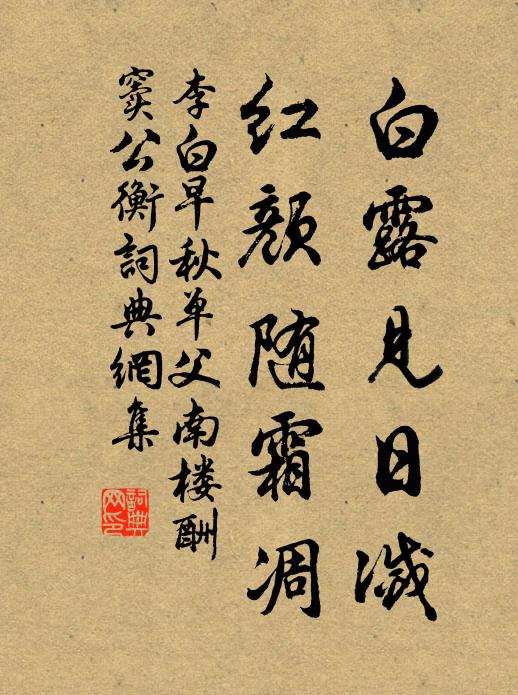 白露见日灭
红颜随霜凋
李白早秋单父南楼酬
窦公衡詞典網集
詞典网印